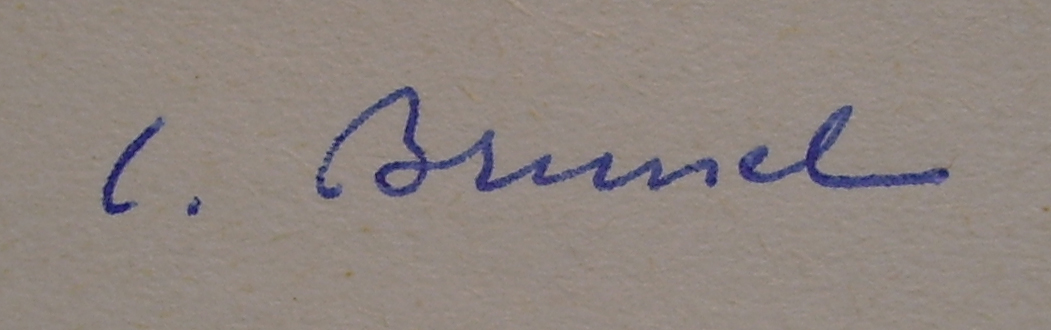 C. Brunel